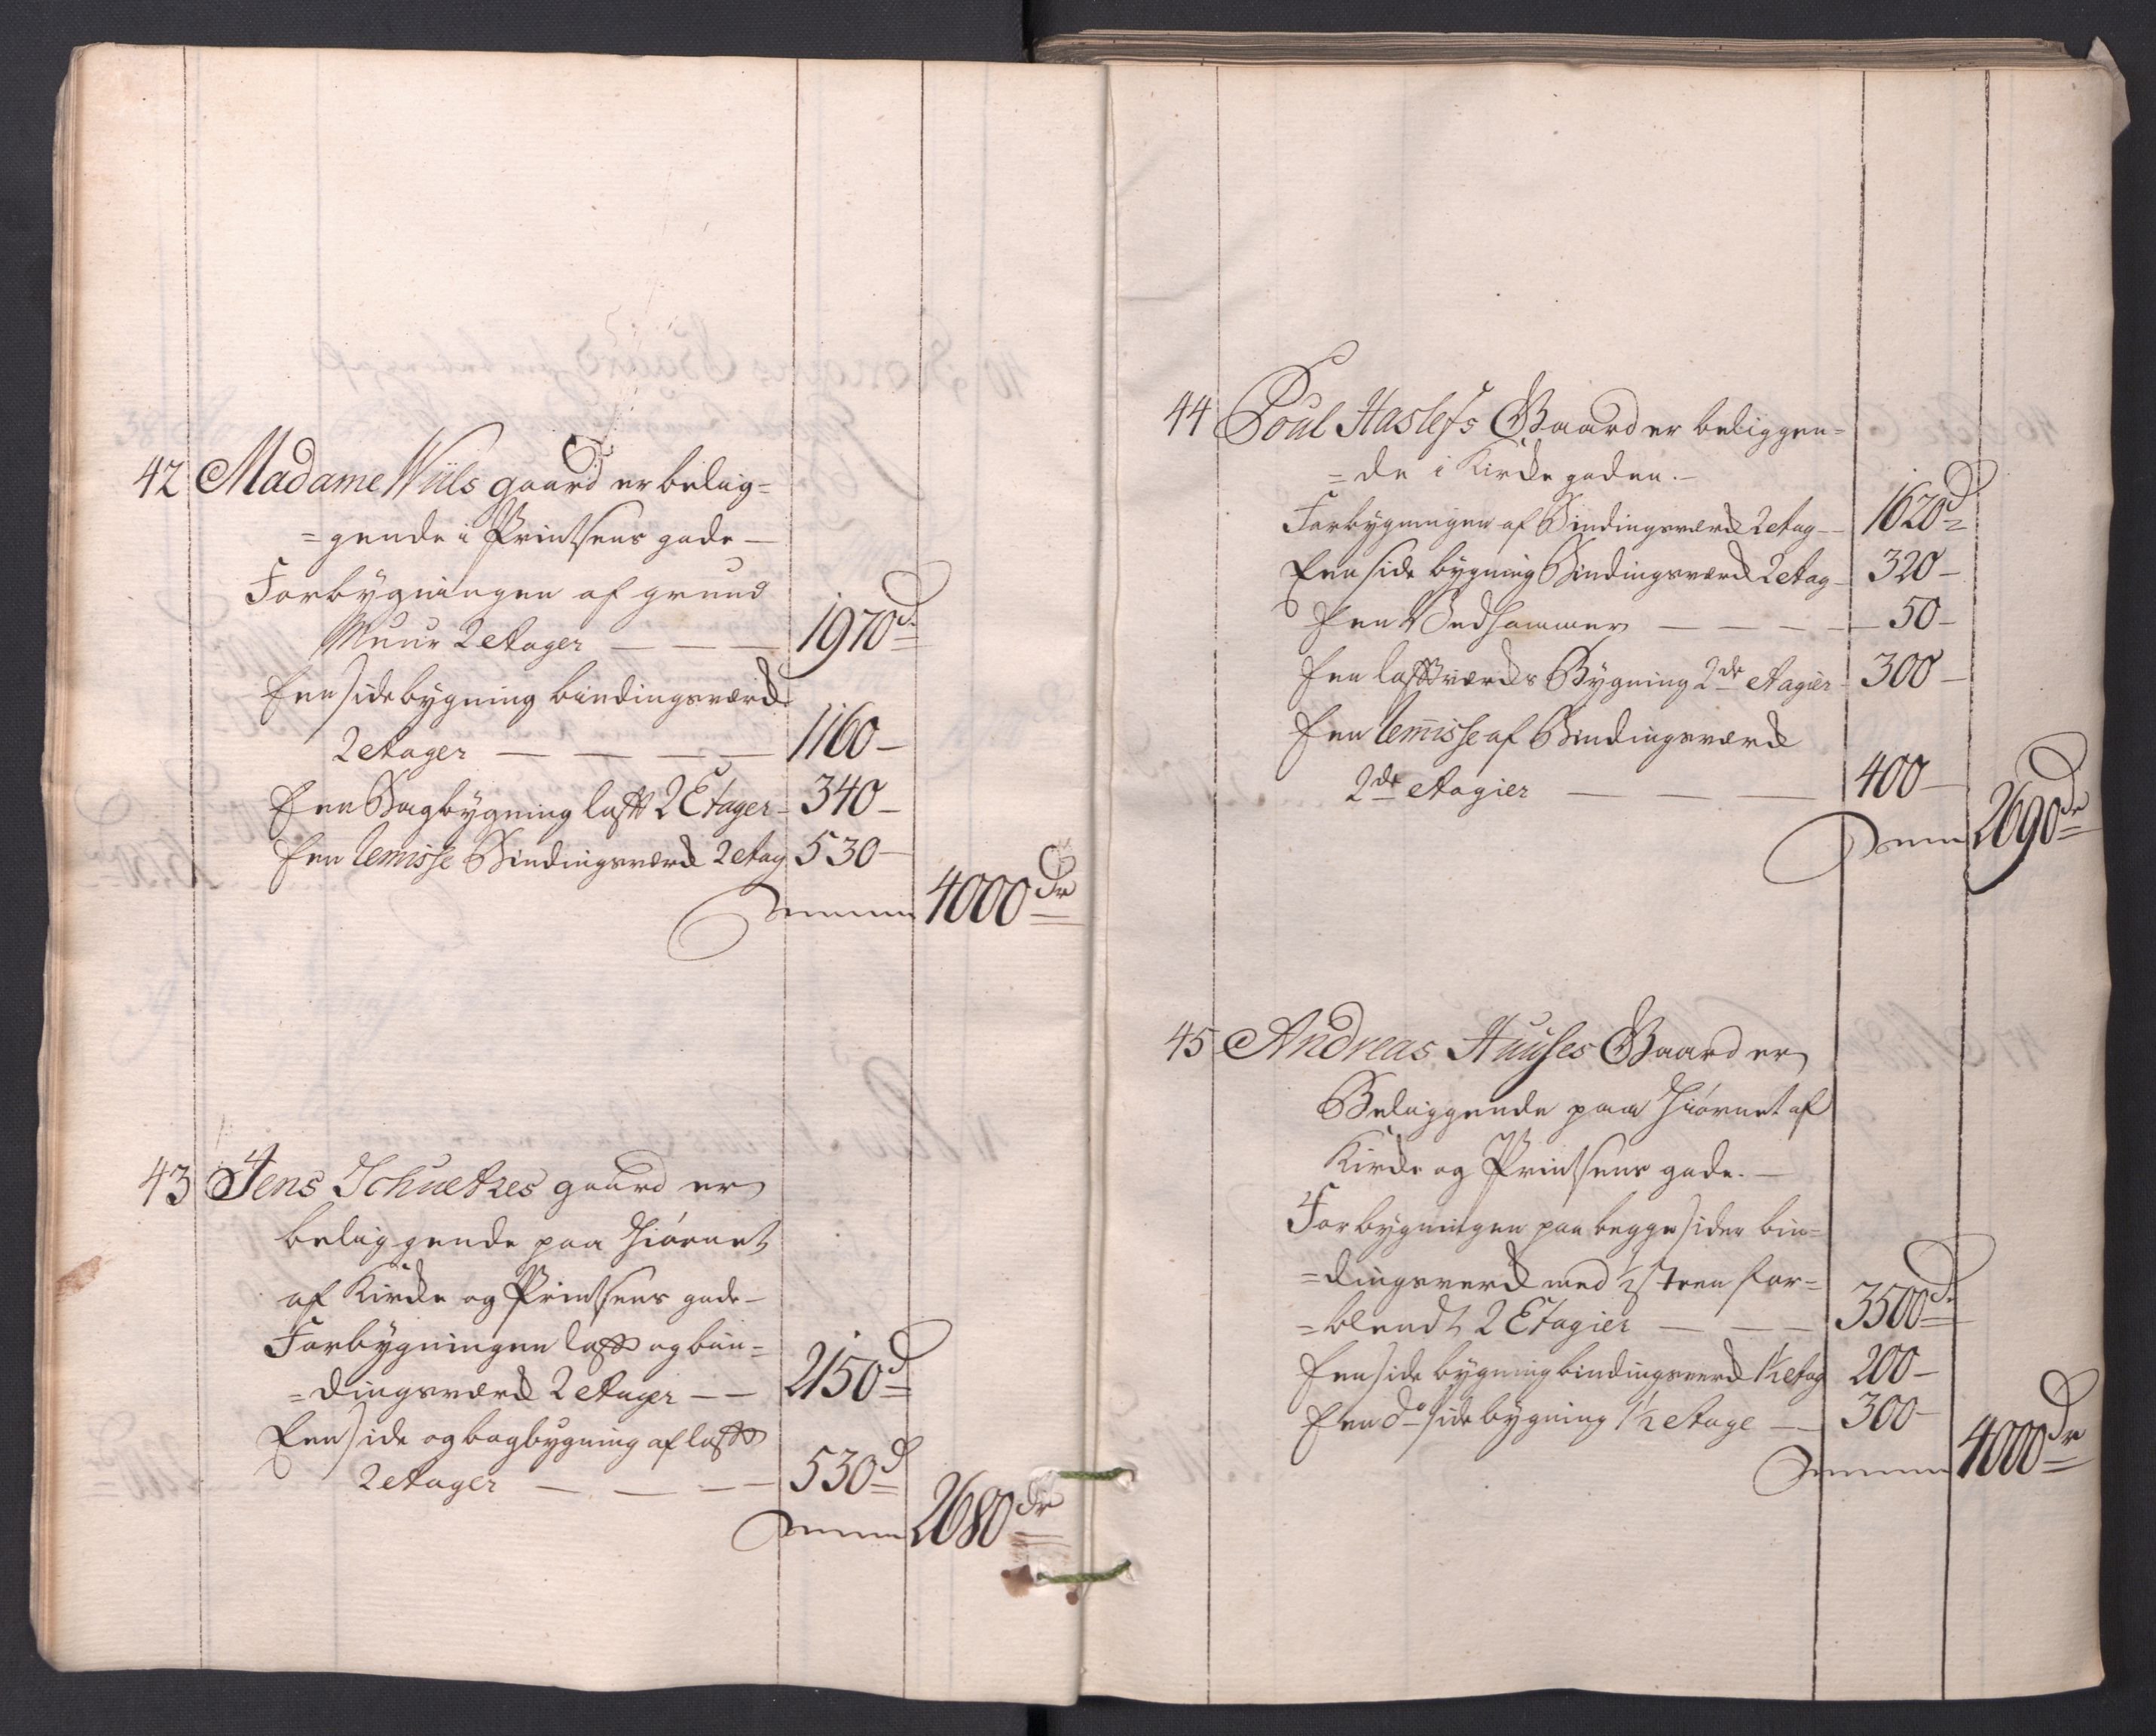 42 Madame Wiils gaard er belig=
=gende i Printsens gade —
Forbygningen af grund
Muur 2 etager — — — 1970 d
Een sidebygning bindingsværk
2 etager — — — — 1160 —
Een Bagbygning laft 2 Etager — 340 —
Een Remisse Bindingsværk 2 etag 530 —
Summa 4000 Dr
43 Jens Schuetzes gaard er
beliggende paa Hiørnet
af Kirke og Printsens gade —
Forbygningen laft og bin=
=dingsværk 2 etager — — 2150 d
Een side og bagbygning af laft
2 etager — — — — 530 d
Summa 2680 Dr
44 Poul Haslefs Gaard er beliggen=
=de i Kirke gaden. —
Forbygningen af Bindingsværk 2 etag — 1620 d
Een side bygning Bindingsværk 2 etag — 320 —
Een Vedhammer — — — — 50 —
Een laftværks Bygning 2de etagier 300 —
Een Remisse af Bindingsværk
2de etagier — — — 400 —
Summa 2690 Dr
45 Andreas Huuses Gaard er
Beliggende paa Hiørnet af
Kirke og Printsens gade. —
Forbygningen paa begge sider bin=
=dingsverk med ½ steen for=
=blendt 2 Etagier — — 3500 d
Een side bygning bindingsverk 1½ etag 200 —
Een do side bygning 1½ etage — 300 —
Summa 4000 Dr